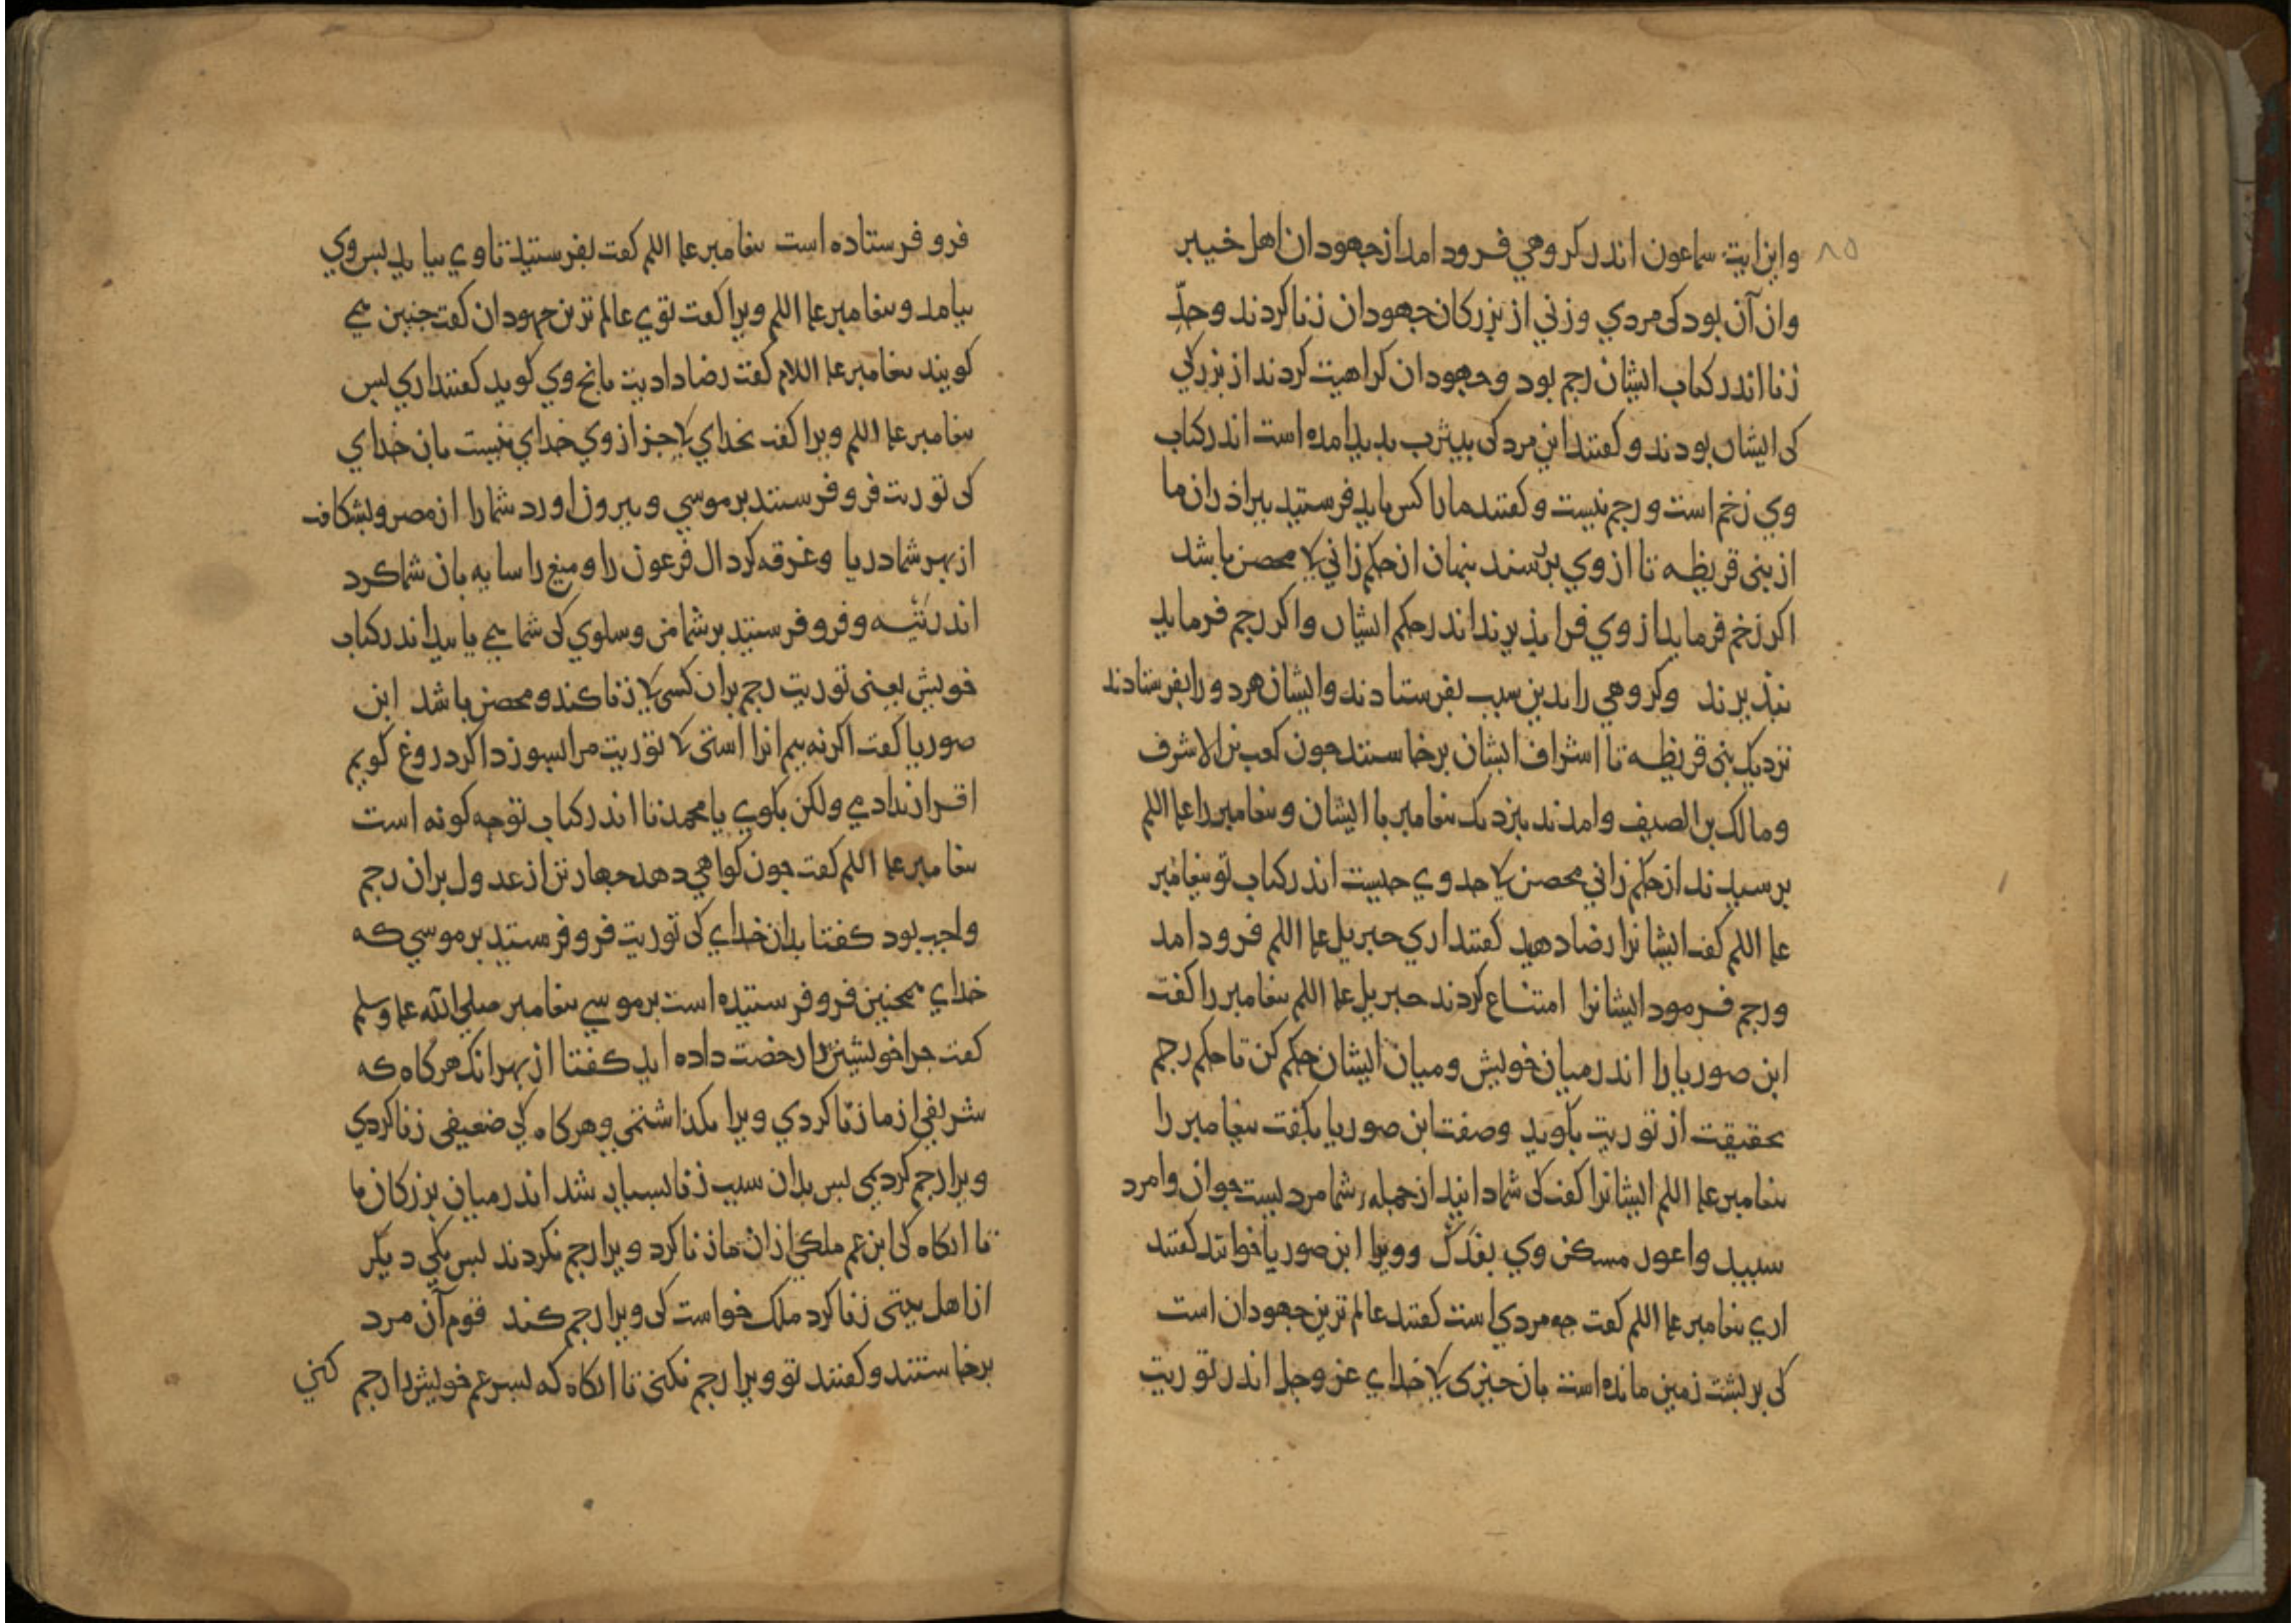 ۸۵
واین ایت سماعون اندر کروهي فرود امد از جهودان اهل خیبر
وان آن بود کی مردي وزني از بزرکان جهودان زنا کردند وحدّ
زنا اندر کتاب ایشان رجم بود وجهودان کراهیت کردند از بزرکي
کی ایشان بودند وکفتند این مرد کی بیثرب بدید امده است اندر کتاب
وي زخم است ورجم نیست وکفتند ما را کس باید فرستید ببراذران ما
از بنی قریظه تا از وي برسند بنهان از حکم زاني کی محصن باشد
اکر زخم فرماید از وي فرابذیرند اندر حکم ایشان واکر رجم فرماید
نبذیرند وکروهي را بدین سبب بفرستادند وایشان هر دو را بفرستادند
نزدیک بنی قریظه تا اشراف ایشان برخاستند جون کعب بن الاشرف
ومالک بن الصیف وامدند بنزدیک بیغامبر با ایشان وبیغامبر را علیه السلم
برسیدند از حکم زاني محصن کی حد وي جیست اندر کتاب تو بیغامبر
علیه السلم کفت ایشانرا رضا دهید کفتند اري جبریل علیه السلم فرود امد
ورجم فرمود ایشانرا امتناع کردند جبریل علیه السلم بیغامبر را کفت
ابن صوریا را اندر میان خویش ومیان ایشان حکم کن تا حکم رجم
بحقیقت از توریت بکوید وصفت ابن صوریا بکفت بیغامبر را
بیغامبر علیه السلم ایشانرا کفت کی شما دانید از جمله شما مردیست جوان وامرد
سبید واعور مسکن وي بفدک وویرا ابن صوریا خوانند کفتند
اري بیغامبر علیه السلم کفت جه مردي است کفتند عالم ترین جهودان است
کی بر بشت زمین مانده است بان جیزی کی خداي عز وجل اندر توریت
فرو فرستاده است بیغامبر علیه السلم کفت بفرستید تا وي بیاید بس وي
بیامد وبیغامبر علیه السلم ویرا کفت توي عالم ترین جهودان کفت جنین می
کویند بیغامبر علیه السلام کفت رضا دادیت بانج وي کوید کفتند اري بس
بیغامبر علیه السلم ویرا کفت بخداي کی جز از وي خداي نیست بان خداي
کی توریت فرو فرستید بر موسي وبیرون اورد شما را از مصر وبشکافت
از بهر شما دریا وغرقه کرد ال فرعون را ومیغ را سایه بان شما کرد
اندر تیه وفرو فرستید بر شما من وسلوي کی شما می یابید اندر کتاب
خویش یعنی توریت رجم بران کسی کی زنا کند ومحصن باشد ابن
صوریا کفت اکر نه بیم انرا استی کی توریت مرا بسوزد اکر دروغ کویم
اقرار ندادمي ولکن بکوي یا محمد تا اندر کتاب تو جه کونه است
بیغامبر علیه السلم کفت جون کواهي دهد جهار تن از عدول بران رجم
واجب بود کفتا بدان خداي کی توریت فرو فرستید بر موسي که
خداي همجنین فرو فرستیده است بر موسي بیغامبر صلی الله علیه وسلم
کفت جرا خویشتن را رخصت داده اید کفتا از بهر انک هرکاه که
شریفي از ما زنا کردي ویرا بکذاشتمي وهرکاه کی ضعیفی زنا کردي
ویرا رجم کردیمي بس بدان سبب زنا بسیار شد اندر میان بزرکان ما
تا انکاه کی ابن عم ملکي از ان ما زنا کرد ویرا رجم نکردند بس یکي دیکر
از اهل بیتی زنا کرد ملک خواست کی ویرا رجم کند قوم آن مرد
برخاستند وکفتند تو ویرا رجم نکنی تا انکاه که بسر عم خویش را رجم کني